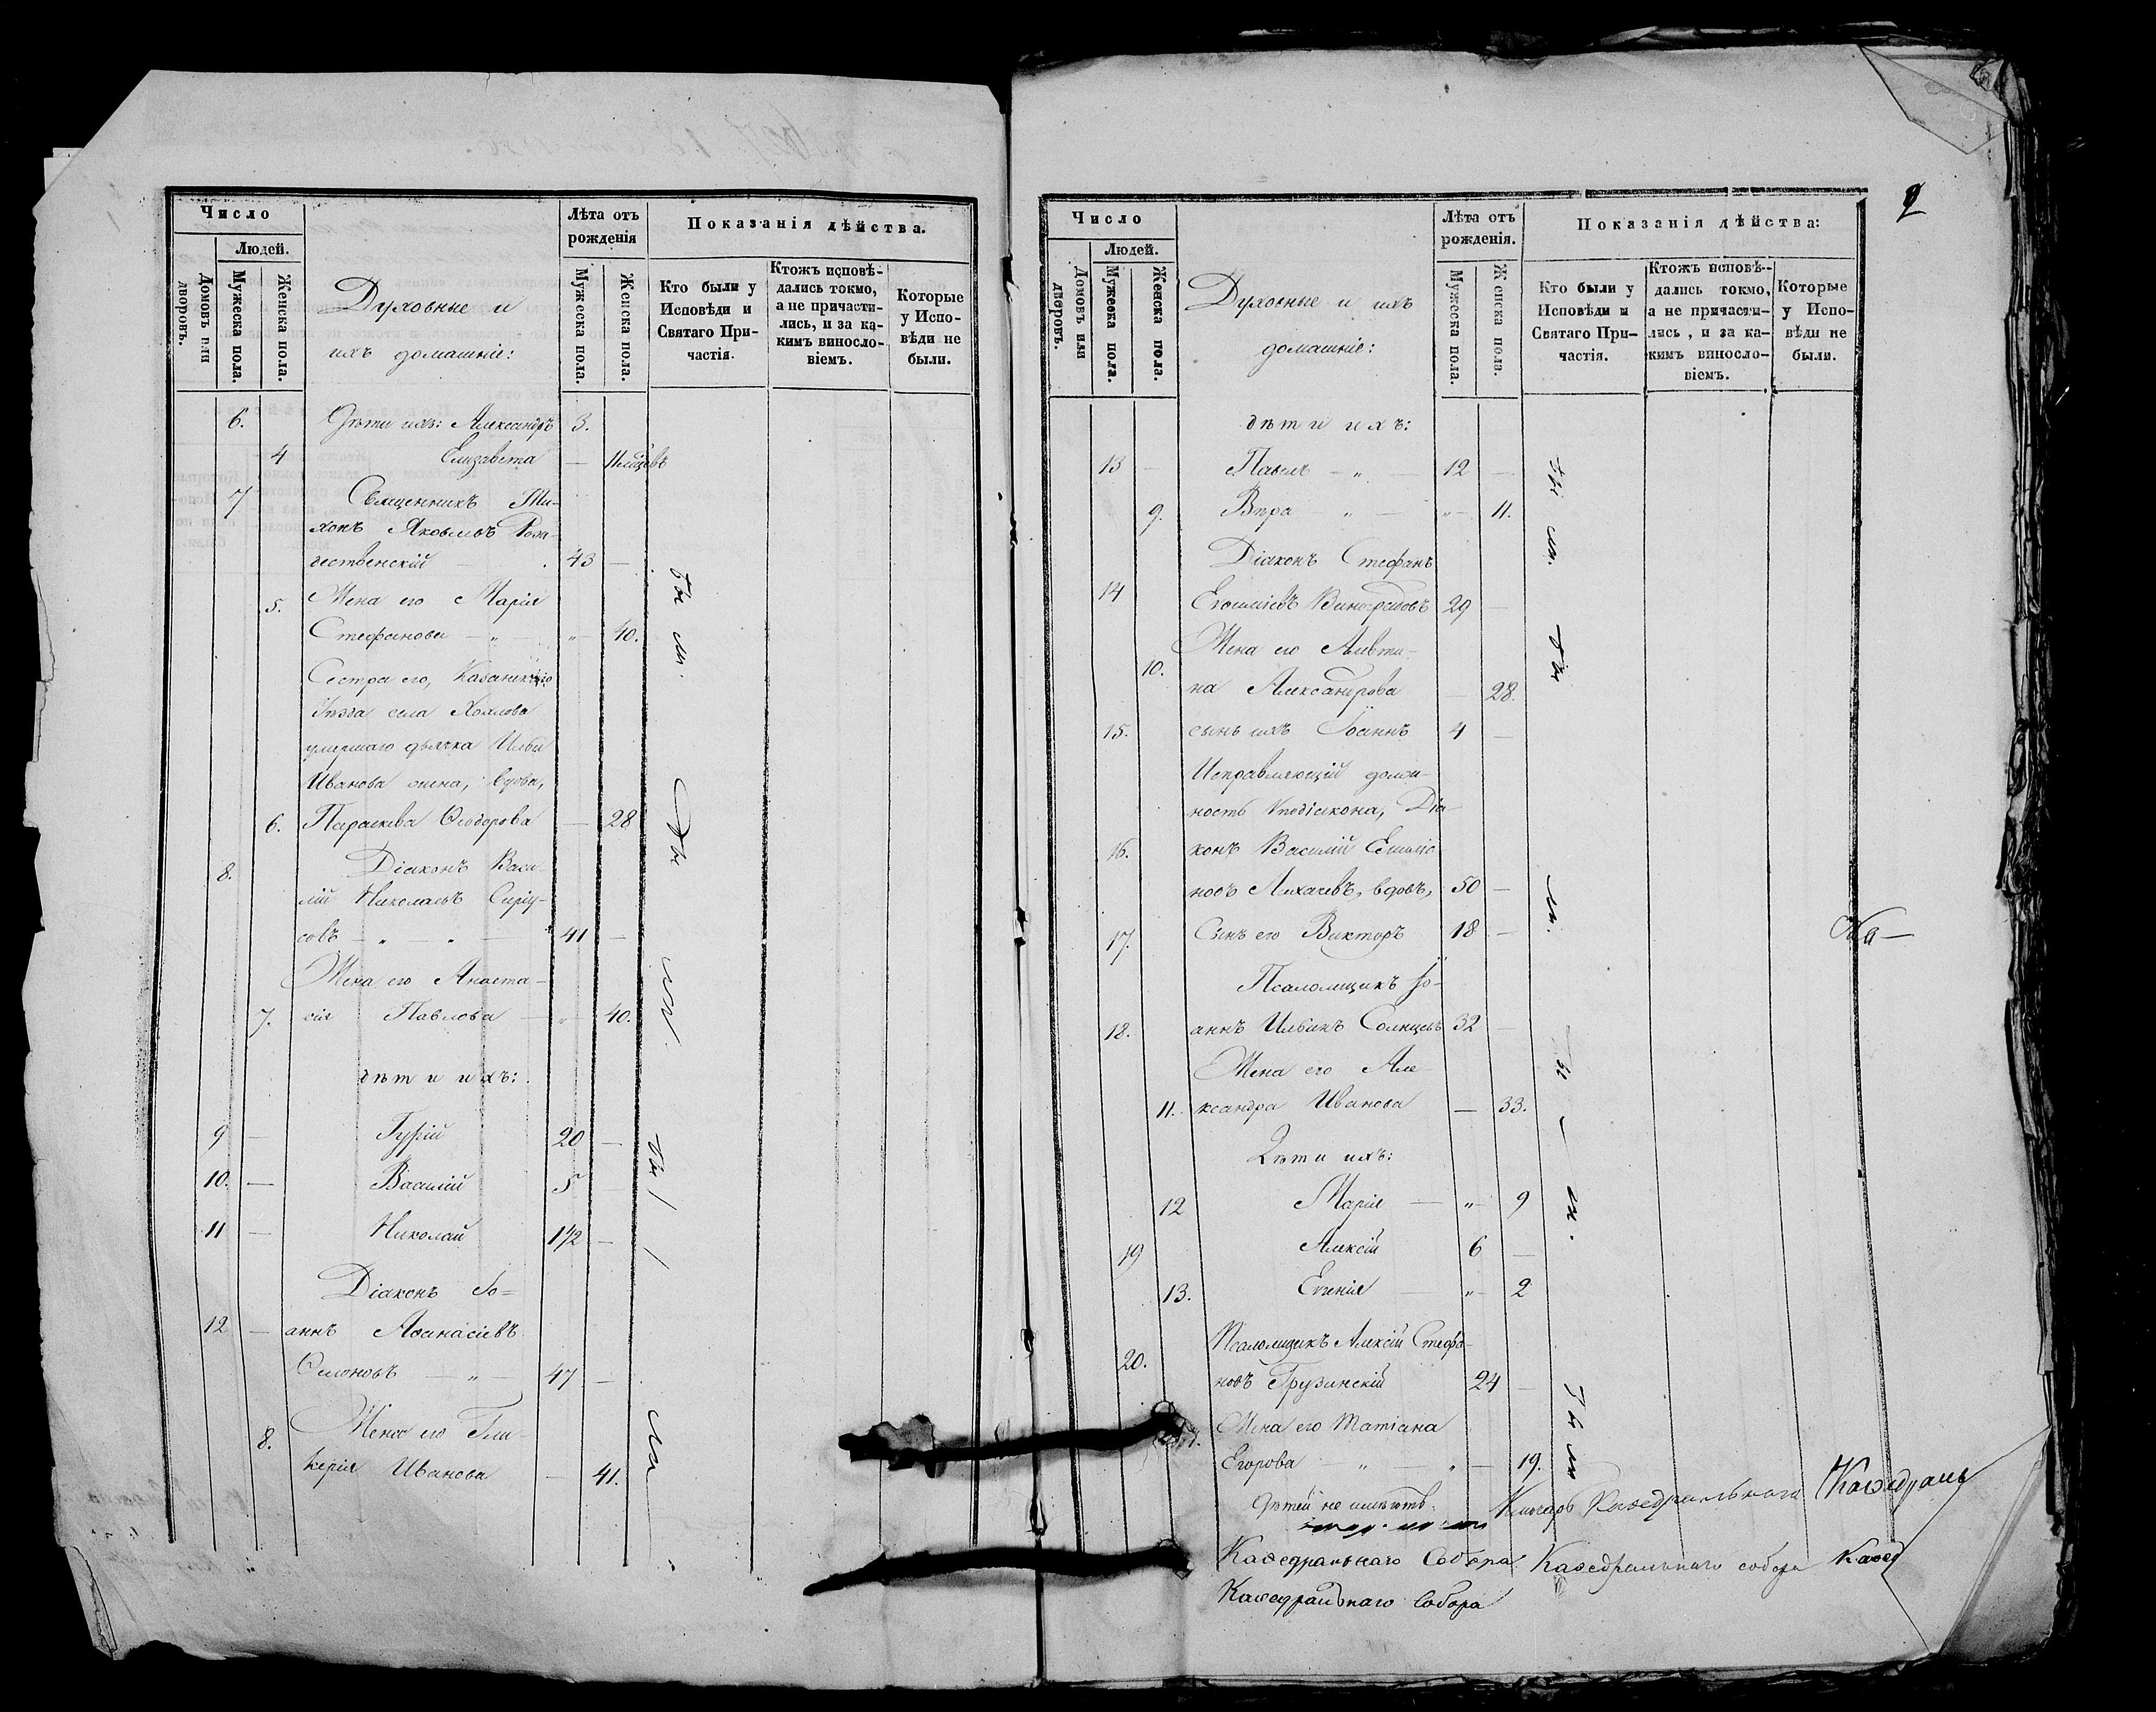 Число
Людей.
Домовъ или дворовъ.
Мужеска пола.
Женска пола.
Духовные и
ихъ домашніе:
Лѣта отъ
рожденія
Мужеска пола.
Женска пола.
Показанія дѣйства.
Кто были у
Исповѣди и
Святаго При-
частія.
Ктожъ исповѣ-
дались токмо,
а не причасти-
лись, и за ка-
кимъ винносло-
віемъ.
Которые
у Испо-
вѣди не
были.
6. Дѣти ихъ: Александръ 3.
4 Елизавета —
7 Священникъ Ти-
хонъ Яковлевъ Рож-
дественскій 43 —
5. Жена его Марія
Стефанова — „ — „ — 40.
Сестра его, Казанскаго
Уѣзда села
умершаго дьячка Ильи
Иванова жена, вдова,
6. Параскева Ѳеодорова — 28
8. Діаконъ Васи-
лій Николаевъ
совъ — „ — „ — 41 —
Жена его Анаста-
7. сія Павлова — „ — 40.
дѣти ихъ:
9 — Гурій 20 —
10. — Василій 5
11 — Николай 1½ —
Діаконъ Іо-
12 — аннъ Аѳанасіевъ
— „ — 47 —
Жена его Гли-
8. керія Иванова — 41.
2
Число
Людей.
Домовъ или дворовъ.
Мужеска пола.
Женска пола.
Духовные и ихъ
домашніе:
Лѣта отъ
рожденія.
Мужеска пола.
Женска пола.
Показанія дѣйства:
Кто были у
Исповѣди и
Святаго При-
частія.
Ктожъ исповѣ-
дались токмо,
а не причасти-
лись, и за ка-
кимъ винносло-
віемъ.
Которые
у Испо-
вѣди не
были.
дѣти ихъ:
13 — Павелъ — „ — 12 —
9. Вѣра — „ — „ — 11.
Діаконъ Стефанъ
14 Виноградовъ 29 —
Жена его Алевти-
10. на Александрова — 28.
15. сынъ ихъ Іоаннъ 4 —
Исправляющій долж-
ность Иподіакона, Діа-
16. конъ Василій
новъ Лихачевъ, вдовъ, 50 —
17. Сынъ его Викторъ 18 —
На —
Псаломщикъ Іо-
18. аннъ Ильинъ Солнцевъ 32 —
Жена его Але-
11. ксандра Иванова — 33.
Дѣти ихъ:
12 Марія — „ — 9
19 Алексій 6 —
13. Евгенія — „ — 2
Псаломщикъ Алексій Стефа-
20. новъ Грузинскій 24 —
Жена его Татіана
Егорова — „ — „ — 19.
Дѣтей не имѣютъ. Ключарь Каѳедральнаго Каѳедраль
Каѳедральнаго Собора Каѳедральнаго собора Каѳед
Каѳедральнаго Собора